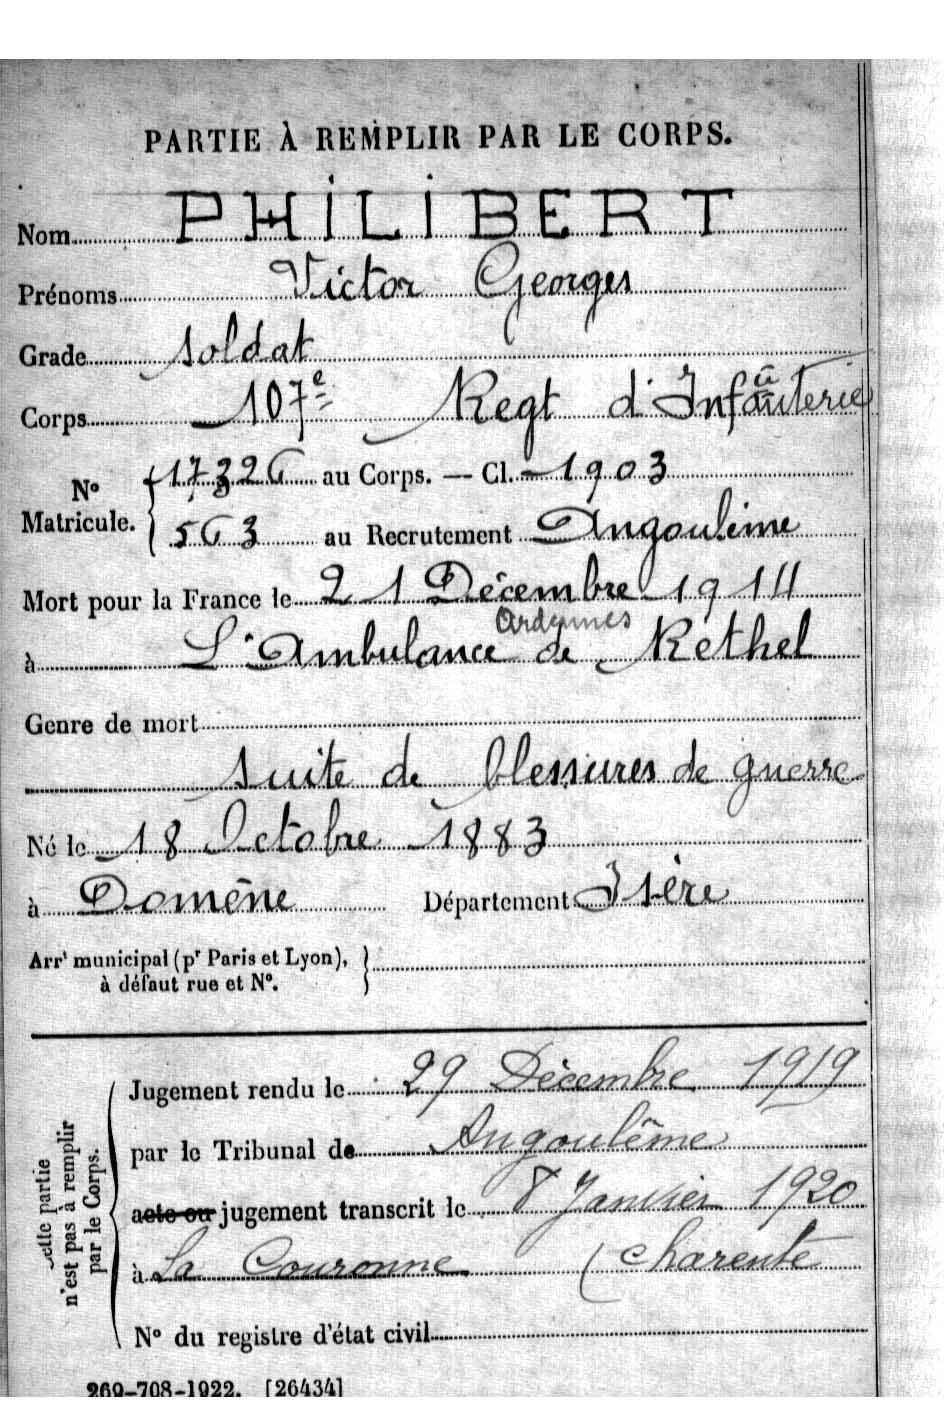 PARTIE À REMPLIR PAR LE CORPS.
Nom PHILIBERT
Prénoms Victor Georges
Grade Soldat
Corps 107e Regt d'Infanterie
No Matricule. 17326 au Corps. — Cl. 1903
563 au Recrutement Angoulême
Mort pour la France le 21 Décembre 1914
Ardennes
à L'Ambulance de Rethel
Genre de mort
suite de blessures de guerre
Né le 18 Octobre 1883
à Domène Département Isère
Arrt municipal (pr Paris et Lyon),
à défaut rue et No.
Cette partie
n'est pas à remplir
par le Corps.
Jugement rendu le 29 Décembre 1919
par le Tribunal de Angoulême
acte ou jugement transcrit le 8 Janvier 1920
à La Couronne (Charente
No du registre d'état civil
269-708-1922. [26434]